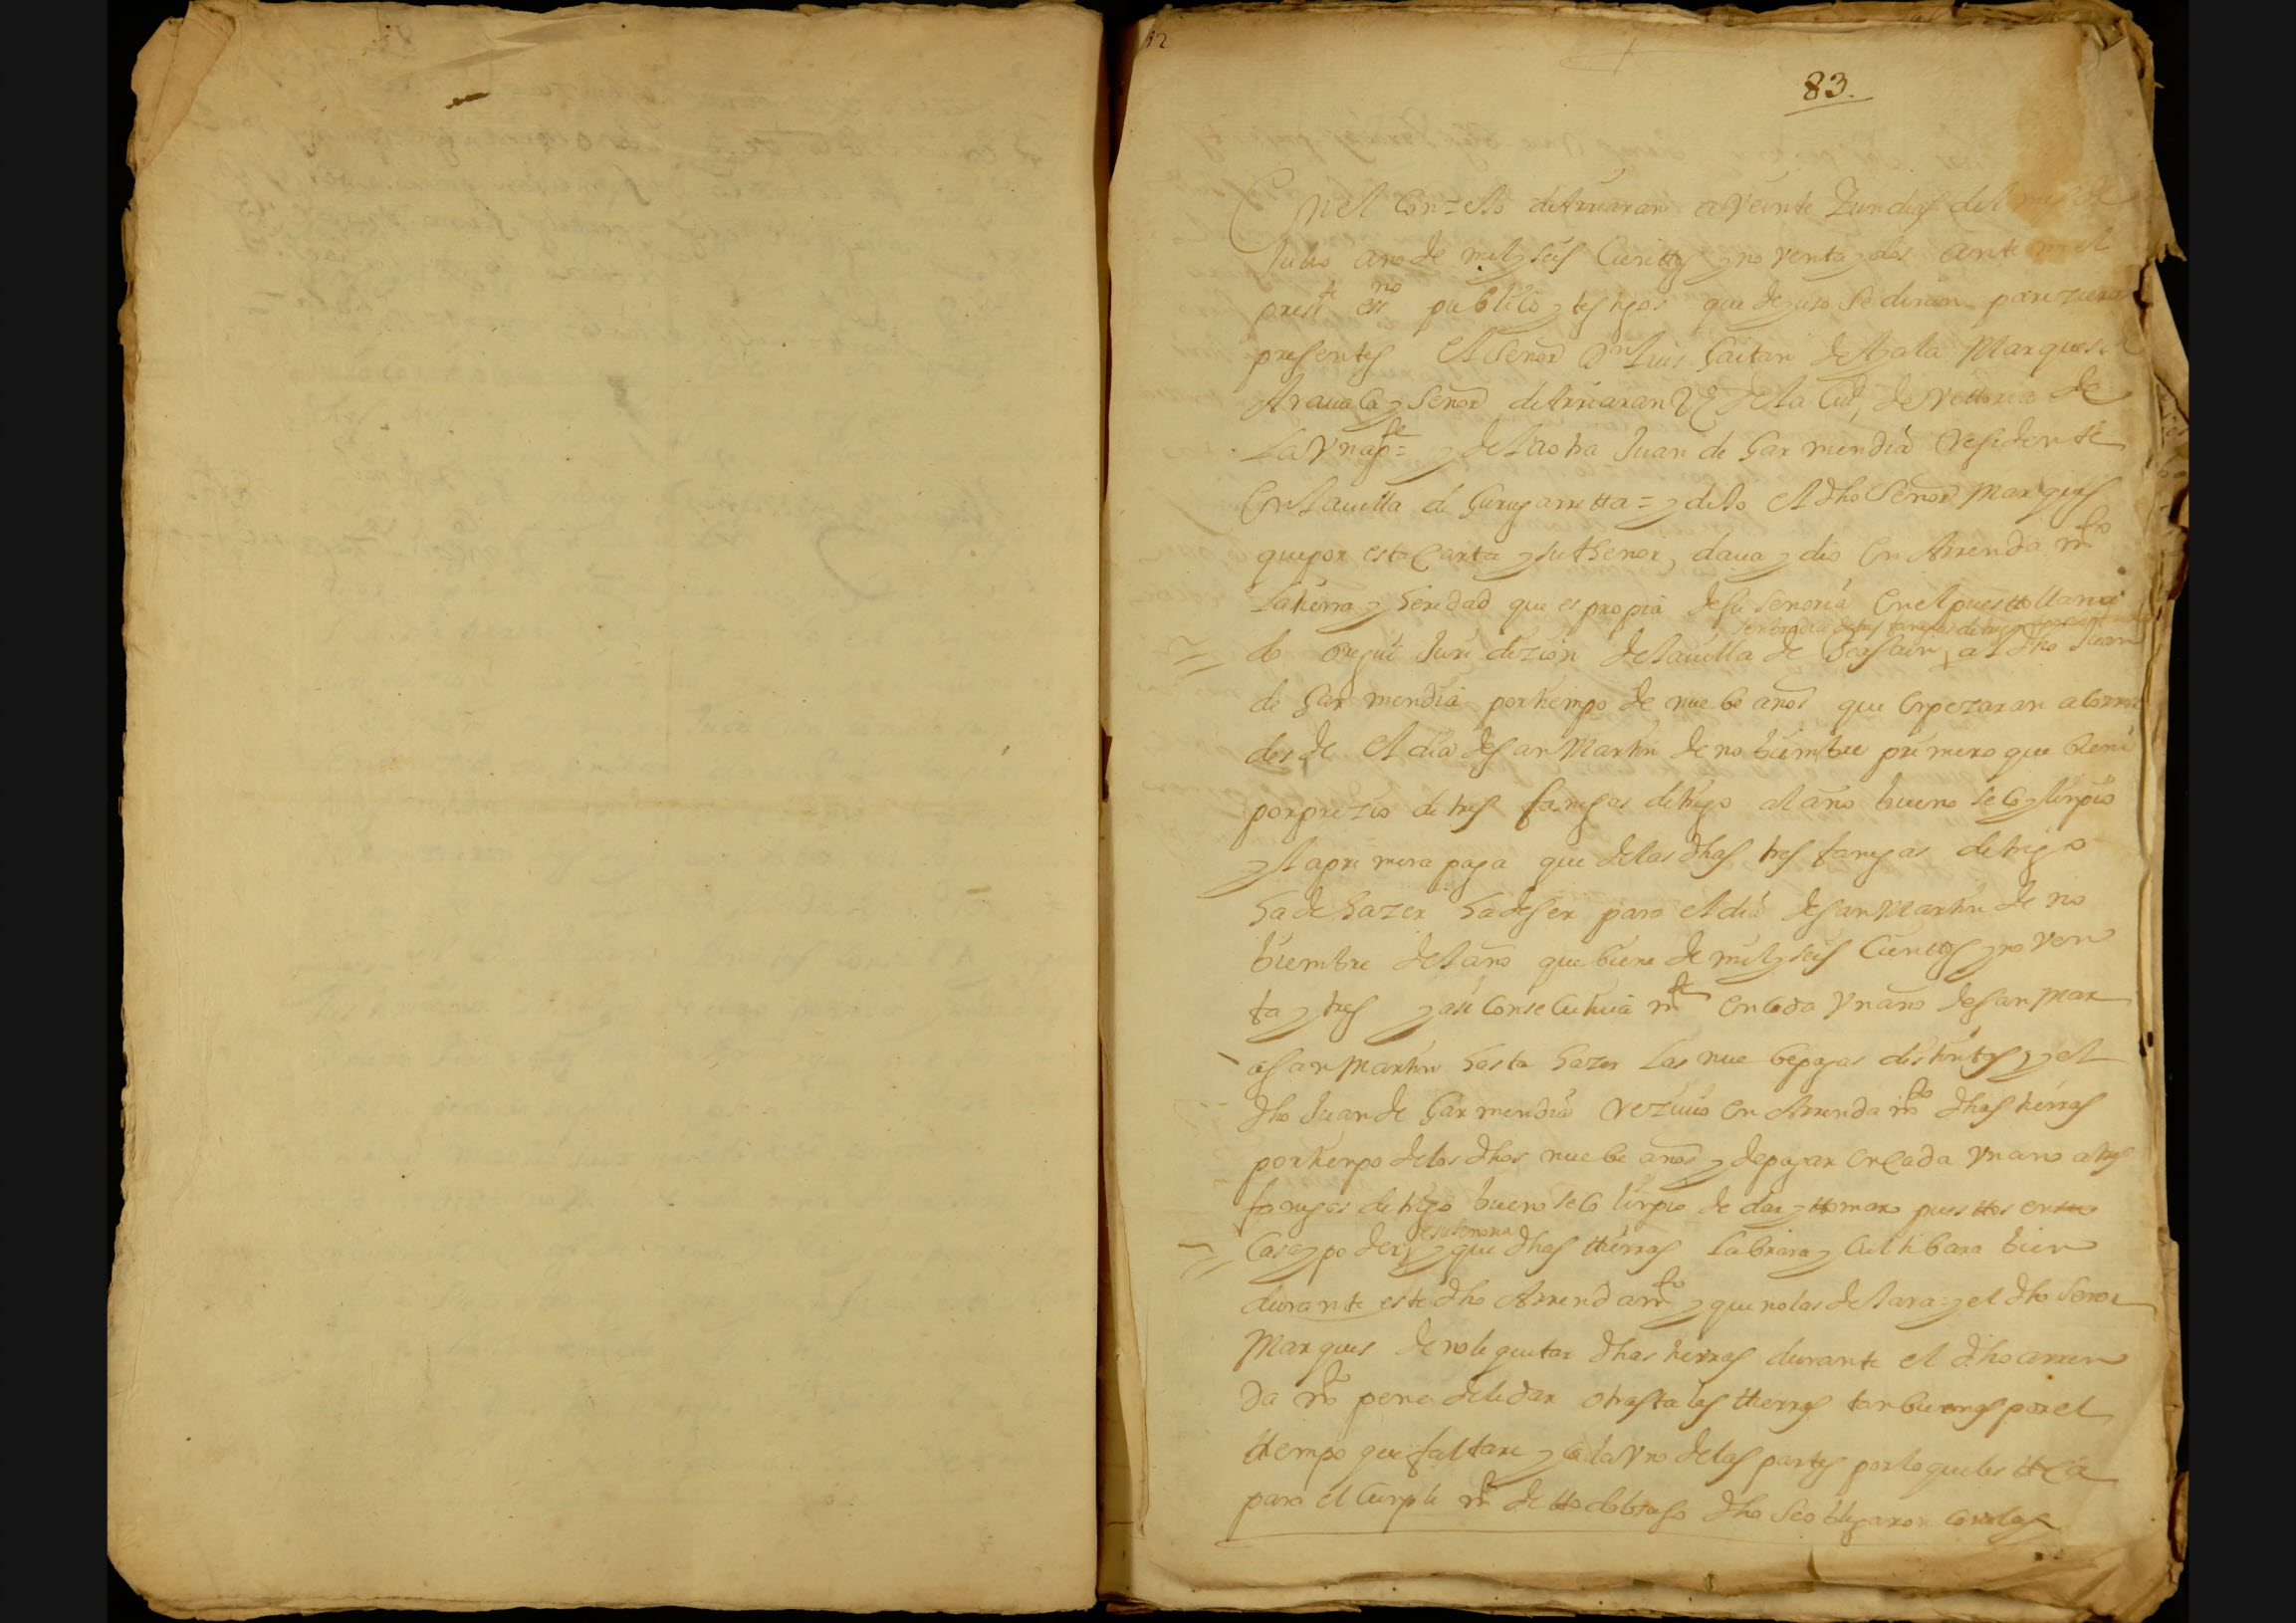 83.
En el Conzejo de Arriaran a veinte y un dias del mes de
Julio año de mil y seis Cientos y noventa y dos ante mi el
presste essno publico y testigos que de yuso se diran parezieron
presentes el Señor Dn Luis Gaitan de Ayala Marques de
Arauaca y Señor de Arriaran Vo de la Ciud de Vittoria de
la Vna pte = y de la otra Juan de Garmendia residente
en la uilla de Gurugarretta = y dijo el dho Señor Marques
que por esta Carta y su thenor, daua y dio en Arrendamto
la tierra y heredad que es propia de su Señoria en el puestto llama
do oregui Jurisdizion de la uilla de Beasain, al dho Juan
de Garmendia por tiempo de nuebe años que enpezaran a correr
desde el dia de San Martin de nobiembre primero que biene
por prezio de tres fanegas de trigo al año bueno seco y linpio
y la primera paga que de las dhas tres fanegas de trigo
ha de hazer ha de ser para el dia de San Martin de no
biembre del año que biene de mil y seis Cientos y noven
ta y tres y asi consecutiuamte en cada Vn año de San Mar
a San Martin hasta hazer las nuebe pagas distintas, y el
dho Juan de Garmendia reziuio en Arrendamto dhas tierras
por tienpo de los dhos nuebe años y de pagar en Cada Vn año a tres
fanegas de trigo bueno seco linpio de dar y ttomar puesttos en su
Casa y poder, de su Señoria y que dhas ttierras labrara y Cultibara bien
durante este dho Arrendamto y que no las dejara = y el dho Señor
Marques de no le quitar dhas tierras durante el dho arren
damto pena de le dar otras tales ttierras tan buenas por el
ttiempo que faltare y Cada Vno de las partes por lo que les ttoca
para el Cunplimto de ttodo lo suso dho se obligaron con las